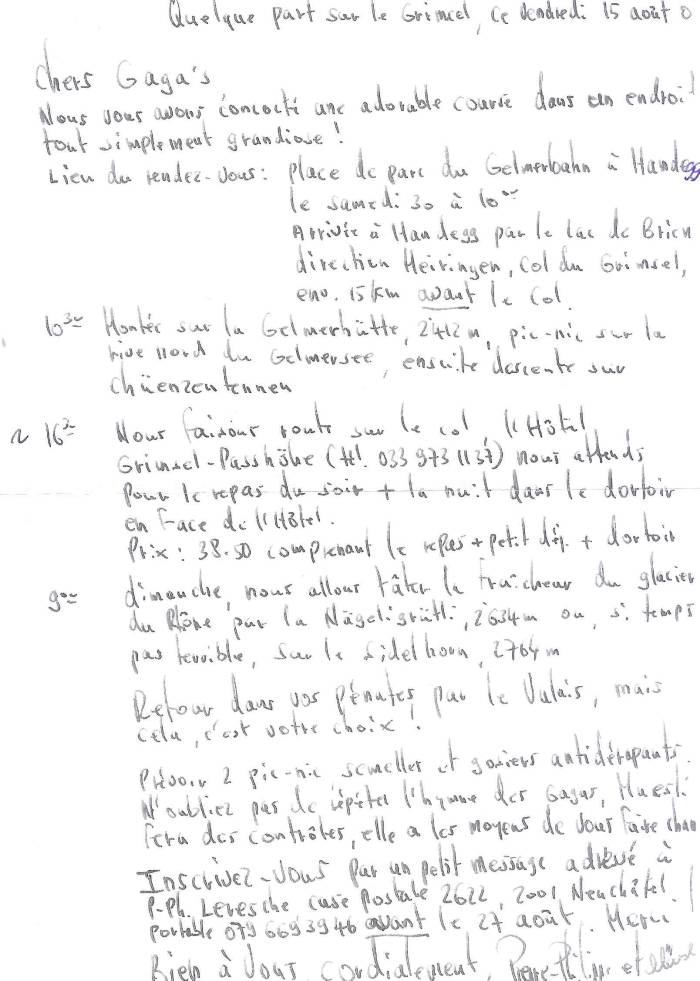 Quelque part sur le Grimsel, ce vendredi 15 août 0
Chers Gaga's
Nous vous avons concocté une adorable course dans un endroit
tout simplement grandiose !
Lieu du rendez-vous : place de parc du Gelmerbahn à Handegg
le samedi 30 à 10°°
Arrivée à Handegg par le lac de Brien
direction Meiringen, col du Grimsel,
env. 15 km avant le col.
10³° Montée sur la Gelmerhütte, 2'412 m, pic-nic sur la
rive nord du Gelmersee, ensuite descente sur
Chüenzentennen
~ 16°° Nous faisons route sur le col, l'Hôtel
Grimsel-Passhöhe (tél. 033 973 11 37) nous attends
pour le repas du soir + la nuit dans le dortoir
en face de l'Hôtel.
Prix : 38.50 comprenant le repas + petit déj. + dortoir
9°° dimanche, nous allons tâter la fraîcheur du glacier
du Rhône par la Nägelisgrätli, 2'634 m ou, si temps
pas terrible, sur le Sidelhorn, 2764 m
Retour dans vos pénates par le Valais, mais
cela, c'est votre choix !
Prévoir 2 pic-nic semelles et gosiers antidérapants.
N'oubliez pas de répéter l'hymne des Gagas, Muesli
fera des contrôles, elle a les moyens de vous faire chan
Inscrivez-vous par un petit message adressé à
P-Ph. Leresche case postale 2622, 2001 Neuchâtel !
portable 079 669 39 46 avant le 27 août. Merci
Bien à vous, cordialement, Pierre-Philippe et